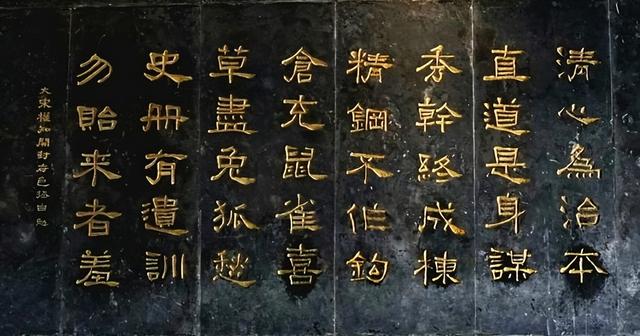 清心為治本
直道是身謀
秀幹終成棟
精鋼不作鈎
倉充鼠雀喜
草盡兔狐愁
史册有遺訓
勿貽来者羞
大宋權知開封府包拯自勉